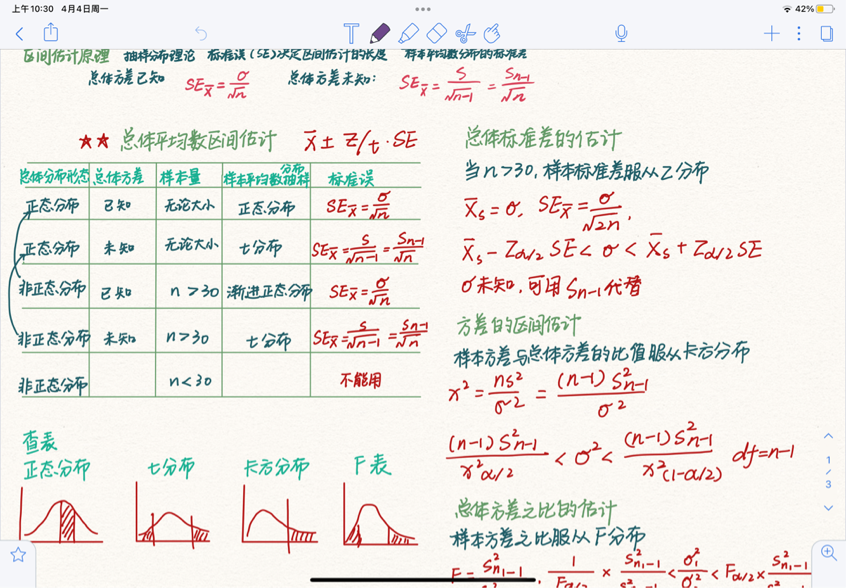 上午10:30 4月4日周一
42%
区间估计原理 抽样分布理论 标准误(SE)决定区间估计的长度 样本平均数分布的标准差
总体方差已知 SE_X̄=σ/√n 总体方差未知: SE_X̄=S/√n-1=Sn-1/√n
★★ 总体平均数区间估计 X̄±Z/t·SE
总体分布形态 总体方差 样本量 样本平均数抽样分布 标准误
正态分布 已知 无论大小 正态分布 SE_X̄=σ/√n
正态分布 未知 无论大小 t分布 SE_X̄=S/√n-1=Sn-1/√n
非正态分布 已知 n>30 渐进正态分布 SE_X̄=σ/√n
非正态分布 未知 n>30 t分布 SE_X̄=S/√n-1=Sn-1/√n
非正态分布 n<30 不能用
查表
正态分布 t分布 卡方分布 F表
总体标准差的估计
当n>30,样本标准差服从Z分布
X̄s=σ, SE_X̄=σ/√2n,
X̄s-Zα/2 SE<σ<X̄s+Zα/2 SE
σ未知,可用Sn-1代替
方差的区间估计
样本方差与总体方差的比值服从卡方分布
x²=ns²/σ²=(n-1)S²n-1/σ²
(n-1)S²n-1/x²α/2<σ²<(n-1)S²n-1/x²(1-α/2) df=n-1
总体方差之比的估计
样本方差之比服从F分布
1/3